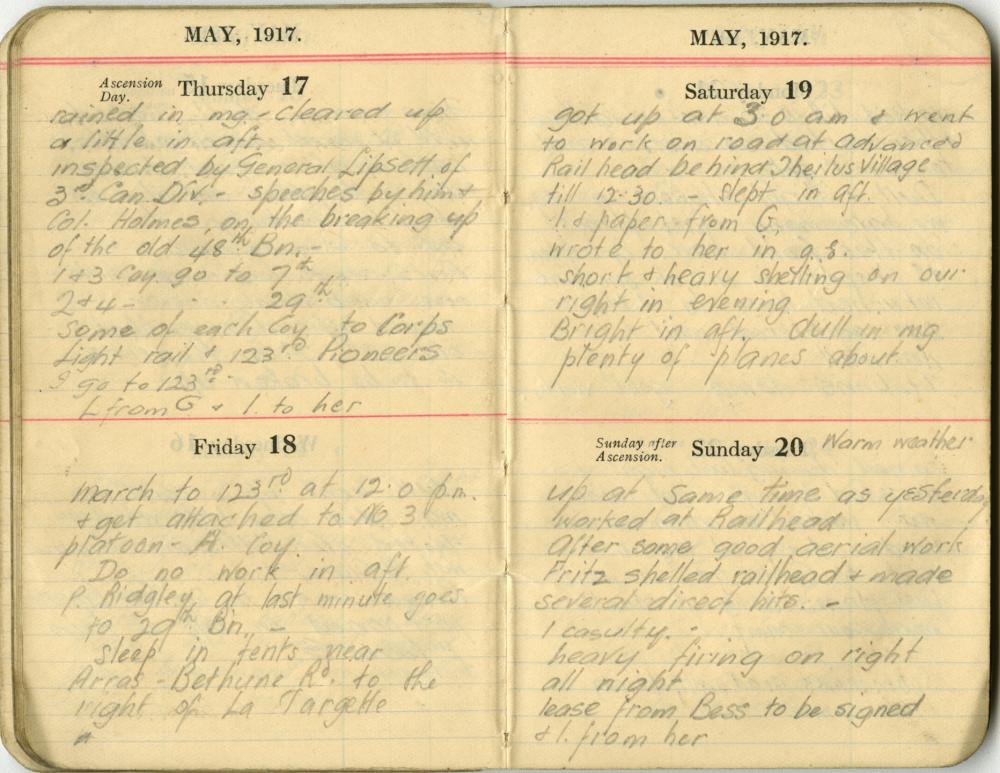 MAY, 1917.
Ascension
Day.
Thursday 17
rained in mg - cleared up
a little in aft.
inspected by General Lipsett of
3rd Can Div. - speeches by him &
Col. Holmes on the breaking up
of the old 48th Bn. -
1 & 3 Coy. go to 7th
2 & 4 - " " 29th
some of each Coy to Corps
Light rail & 123rd Pioneers
I go to 123rd.
L from G & l. to her
Friday 18
march to 123rd at 12.0 p.m.
& get attached to No 3
platoon - A. Coy.
Do no work in aft.
P. Ridgley at last minute goes
to 29th Bn. -
sleep in tents near
Arras - Bethune Rd. to the
right of La Targette
MAY, 1917.
Saturday 19
got up at 3 0 am & went
to work on road at advanced
Rail head behind Thelus Village
till 12.30 - slept in aft.
l. & paper from G,
wrote to her in g.E.
short & heavy shelling on our
right in evening
Bright in aft. dull in mg
plenty of planes about.
Sunday after
Ascension.
Sunday 20 Warm weather
up at same time as yesterday
worked at Railhead
After some good aerial work
Fritz shelled railhead & made
several direct hits. -
1 casulty. -
heavy firing on right
all night
lease from Bess to be signed
& l. from her